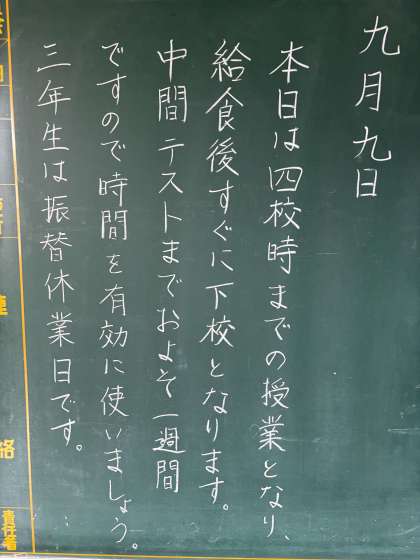 九月九日
本日は四校時までの授業となり、
給食後すぐに下校となります。
中間テストまでおよそ一週間
ですので時間を有効に使いましょう。
三年生は振替休業日です。
連
絡
責任者